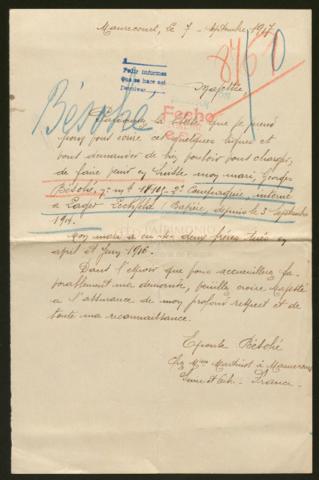 Maurecourt, le 7 Septembre 1917
Pedir informes
que se hace sel
Bésohé
Majesté
Fecho
la que je prend
pour vous écrire ces quelques lignes et
vous demander de bien vouloir vous charger,
de faire passer en Suisse mon mari, Georges
Bésohé, 2e Compagnie, interné
à Lager Lechfeld (Bavière) depuis le 3 Septembre
1914.
Mon mari a eu ses deux frères tués en
avril et Juin 1916.
Dans l'espoir que vous accueillerez fa-
vorablement ma demande, veuillez croire Majesté
à l'assurance de mon profond respect et de
toute ma reconnaissance.
Epouse Bésohé
Chez Mme Martinot à Maurecourt
Seine et Oise - France -